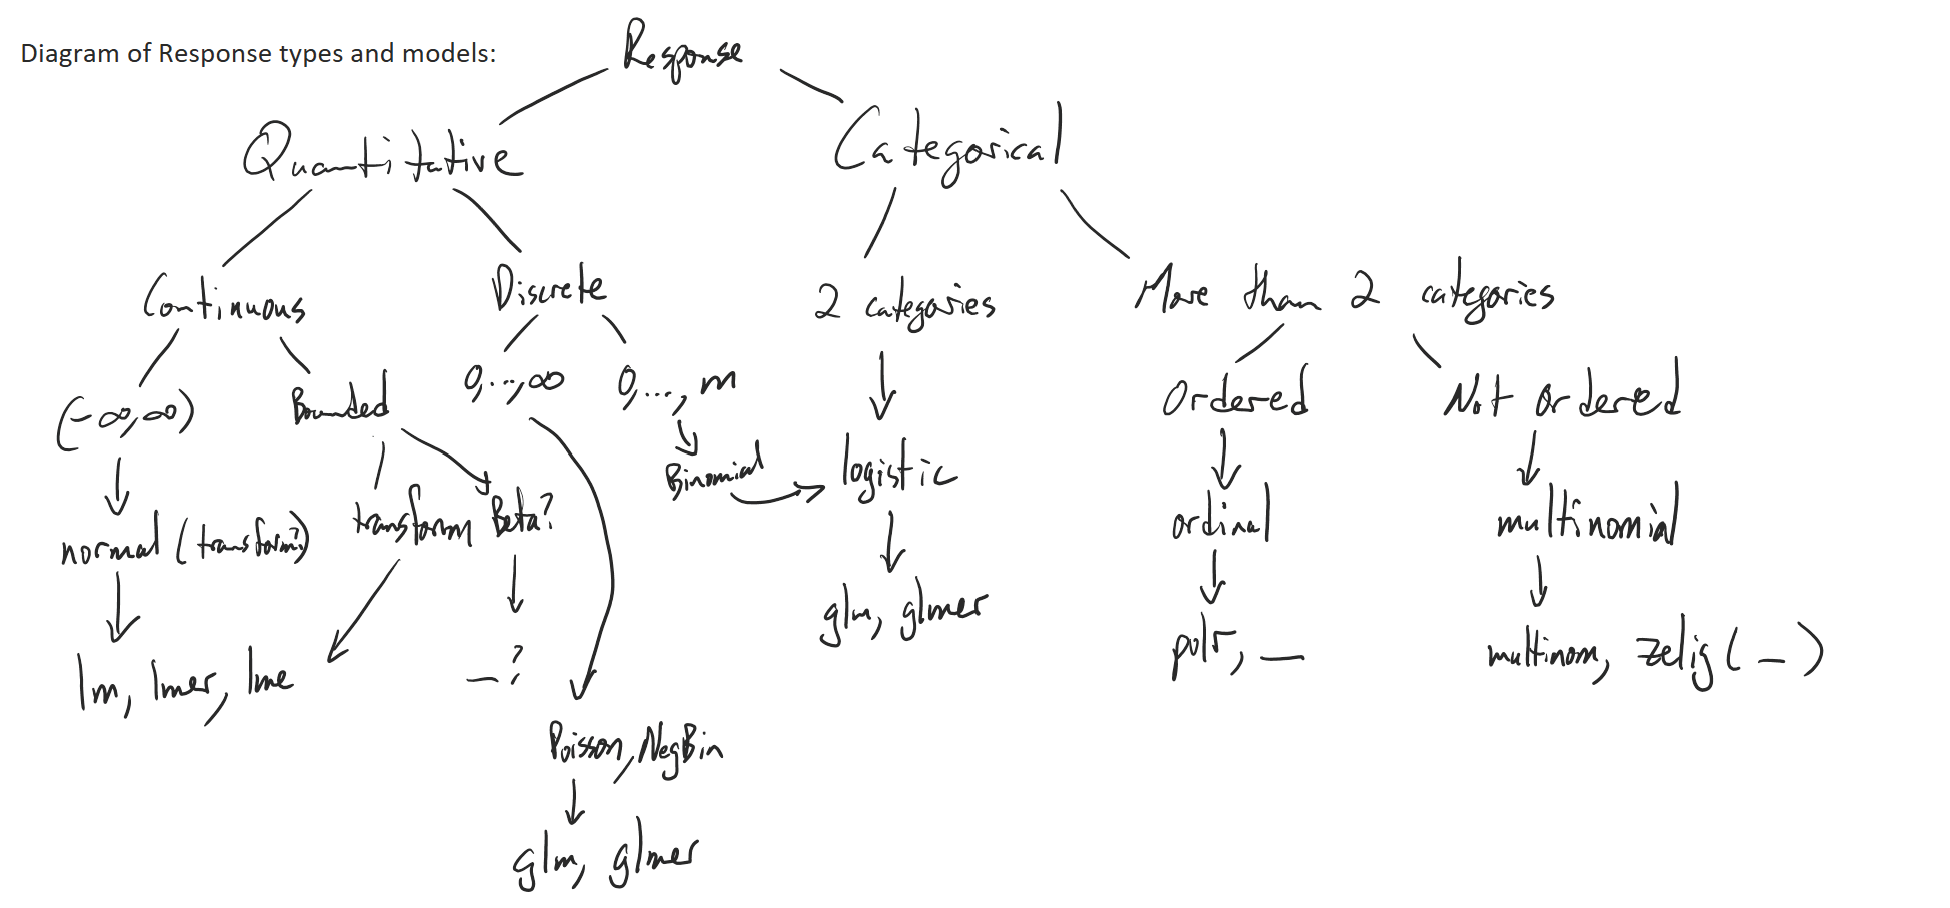 Diagram of Response types and models:
Response
Quantitative
Categorical
Continuous
Discrete
2 categories
More than 2 categories
(-∞,∞)
Bounded
0,...,∞
0,...,m
Ordered
Not ordered
Binomial
logistic
normal (transform?)
transform
Beta?
ordinal
multinomial
glm, glmer
lm, lmer, lme
_?
polr, _
multinom, zelig(_)
Poisson, NegBin
glm, glmer